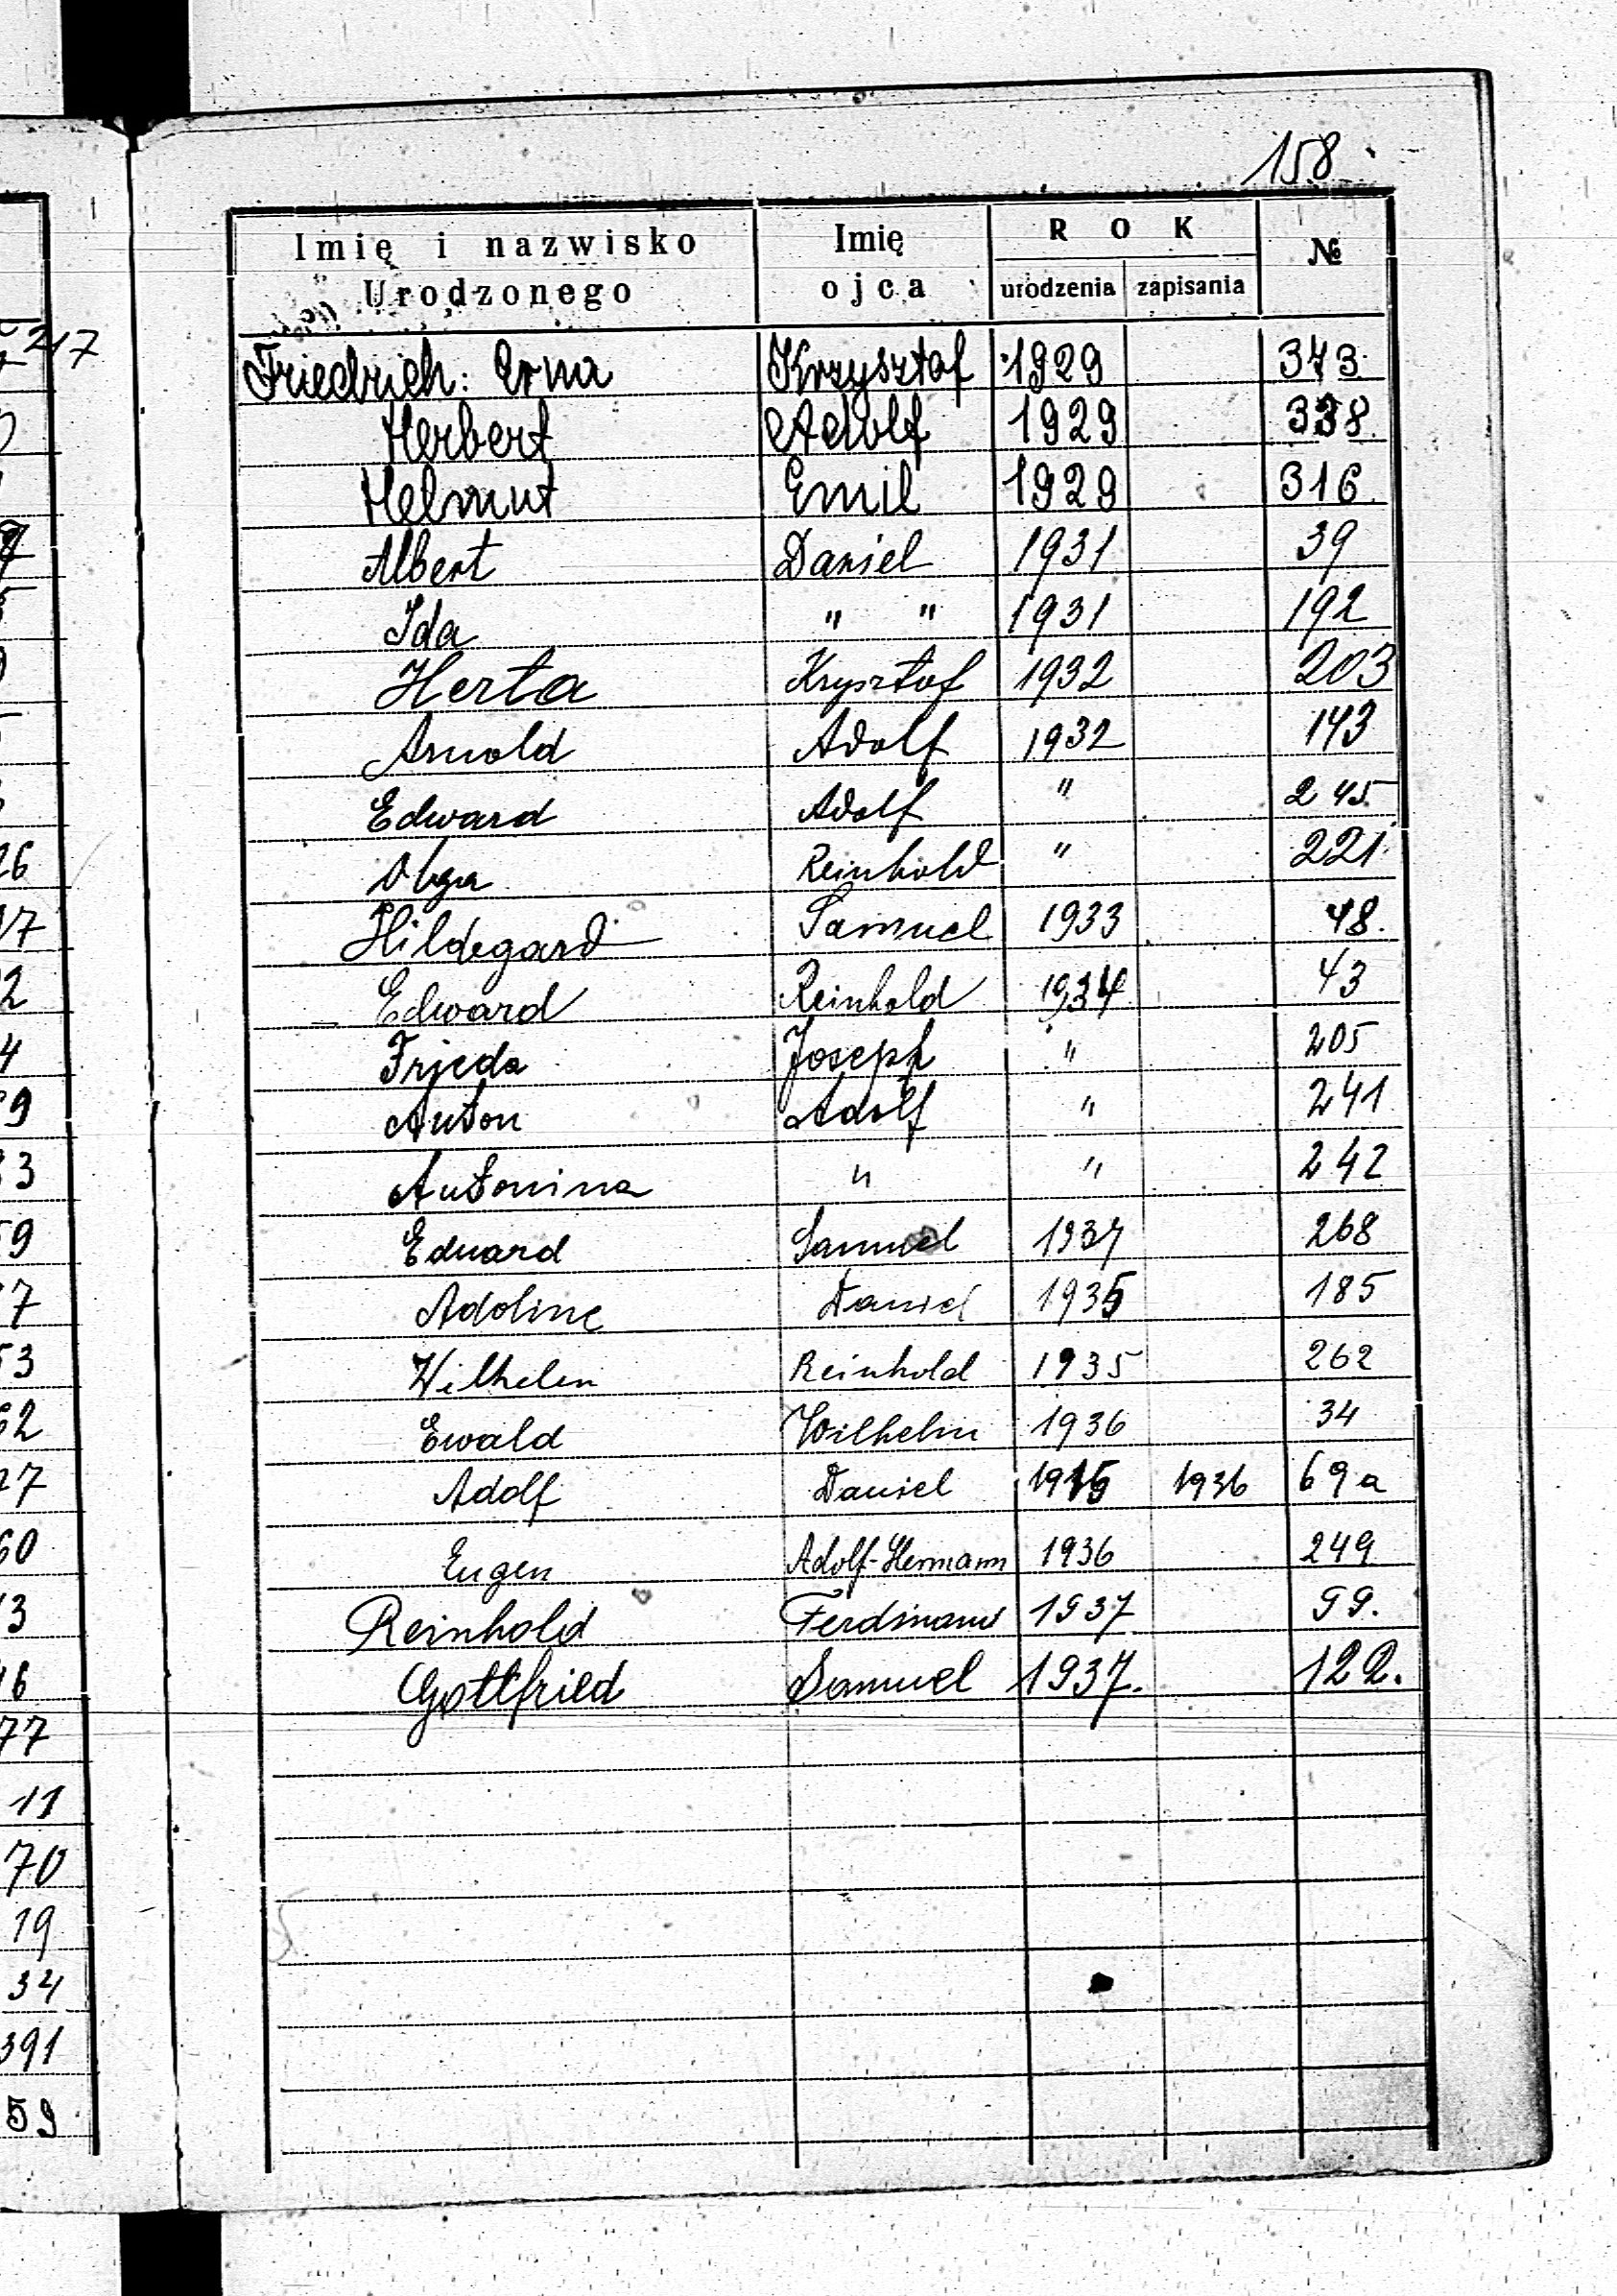 158
Imię i nazwisko Urodzonego
Imię ojca
ROK
urodzenia zapisania
№
Friedrich: Erna Krzysztof 1929 373
Herbert Adolf 1929 338
Helmut Emil 1929 316
Albert Daniel 1931 39
Ida " " 1931 192
Herta Krysztof 1932 203
Arnold Adolf 1932 143
Edward Adolf " 245
Olga Reinhold " 221
Hildegard Samuel 1933 48.
Edward Reinhold 1934 43
Frieda Joseph " 205
Anton Adolf " 241
Antonina " " 242
Eduard Samuel 1934 268
Adoline Daniel 1935 185
Wilhelm Reinhold 1935 262
Ewald Wilhelm 1936 34
Adolf Daniel 1936 69a
Eugen Adolf-Hermann 1936 249
Reinhold Ferdinand 1937 99.
Gottfried Samuel 1937. 122.
217
26
17
2
4
9
3
9
7
53
62
27
60
13
16
77
11
70
19
34
391
59